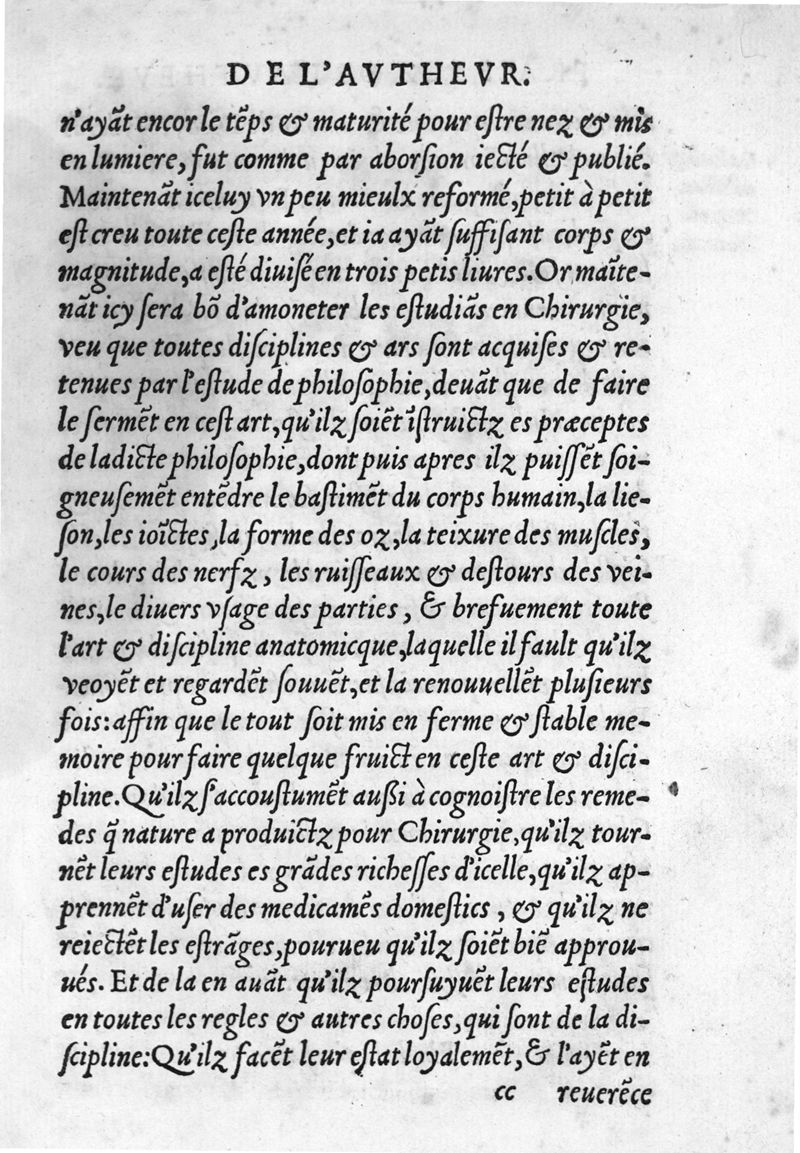 DE L'AVTHEVR.
n'ayãt encor le tẽps & maturité pour eſtre nez & mis
en lumiere, fut comme par aborſion iecté & publié.
Maintenãt iceluy vn peu mieulx reformé, petit à petit
eſt creu toute ceſte année, et ia ayãt ſuffiſant corps &
magnitude, a eſté diuiſé en trois petis liures. Or maĩte-
nãt icy ſera bõ d'amoneter les eſtudiãs en Chirurgie,
veu que toutes diſciplines & ars ſont acquiſes & re-
tenues par l'eſtude de philoſophie, deuãt que de faire
le ſermẽt en ceſt art, qu'ilz ſoiẽt ĩſtruictz es præceptes
de ladicte philoſophie, dont puis apres ilz puiſſẽt ſoi-
gneuſemẽt entẽdre le baſtimẽt du corps humain, la lie-
ſon, les ioĩctes, la forme des oz, la teixure des muſcles,
le cours des nerfz, les ruiſſeaux & deſtours des vei-
nes, le diuers vſage des parties, & brefuement toute
l'art & diſcipline anatomicque, laquelle il fault qu'ilz
veoyẽt et regardẽt ſouuẽt, et la renouuellẽt pluſieurs
fois: affin que le tout ſoit mis en ferme & ſtable me-
moire pour faire quelque fruict en ceſte art & diſci-
pline. Qu'ilz ſ'accouſtumẽt auſſi à cognoiſtre les reme-
des q̃ nature a produictz pour Chirurgie, qu'ilz tour-
nẽt leurs eſtudes es grãdes richeſſes d'icelle, qu'ilz ap-
prennẽt d'uſer des medicamẽs domeſtics, & qu'ilz ne
reiectẽt les eſtrãges, pourueu qu'ilz ſoiẽt biẽ approu-
ués. Et de la en auãt qu'ilz pourſuyuẽt leurs eſtudes
en toutes les regles & autres choſes, qui ſont de la di-
ſcipline: Qu'ilz facẽt leur eſtat loyalemẽt, & l'ayẽt en
cc reuerẽce